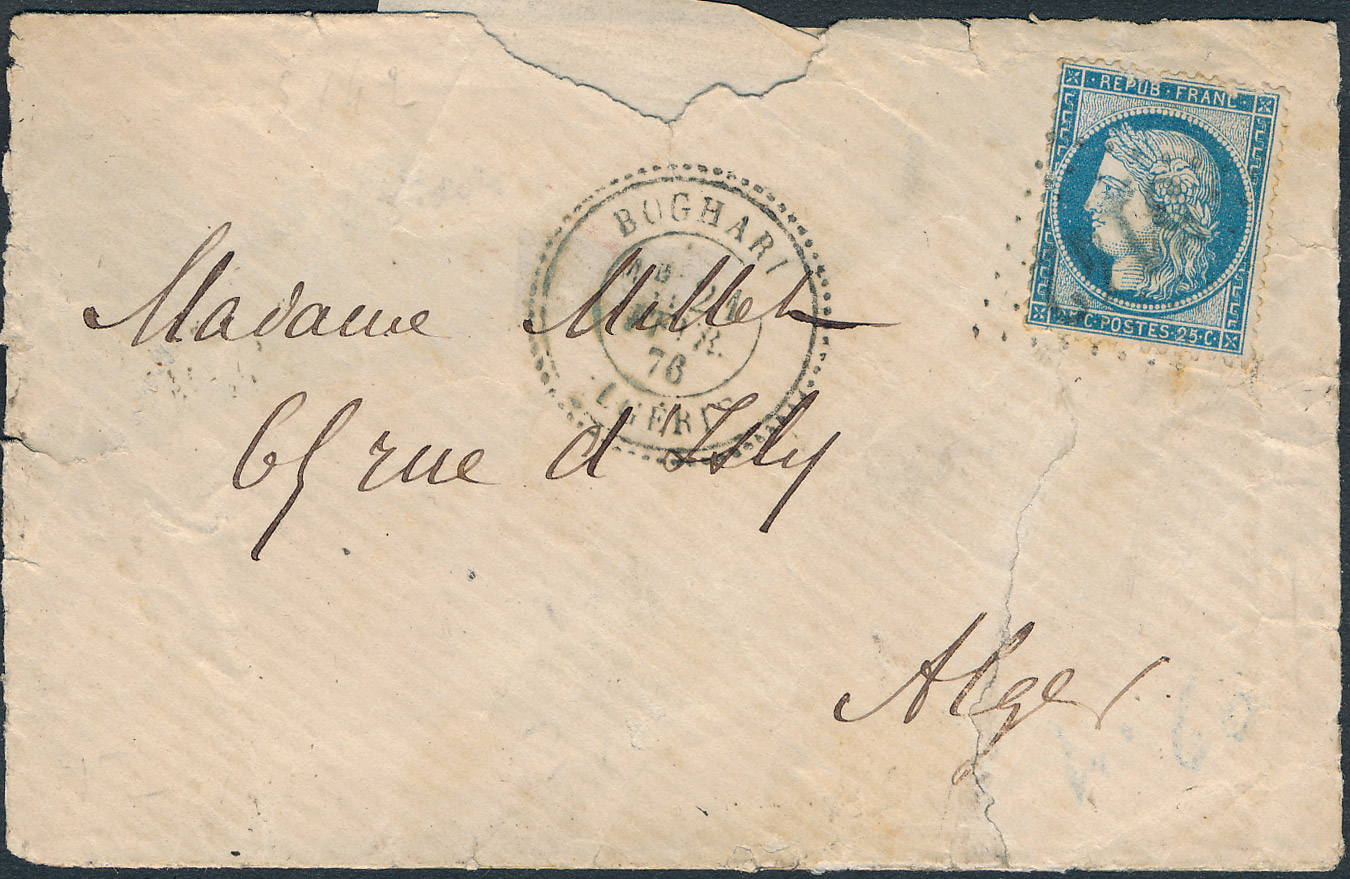 REPUB·FRANC·
C·POSTES·25·C·
BOGHARI
76
Madame Millet
65 rue d'Isly
Alger